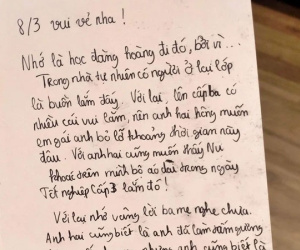 8/3 vui vẻ nha !
Nhớ là học đàng hoàng đi đó, bởi vì...
Trong nhà tự nhiên có người ở lại lớp
là buồn lắm đấy. Với lại, lên cấp ba có
nhiều cái vui lắm, nên anh hai hông muốn
em gái anh bỏ lỡ khoảng thời gian này
đâu. Với anh hai cũng muốn thấy Nu
khoác trên mình bộ áo dài trong ngày
Tết nghiệp Cấp 3 lắm đó !
Với lại nhớ vâng lời ba mẹ nghe chưa.
Anh hai cũng biết là anh đó làm gương
anh cũng biết là